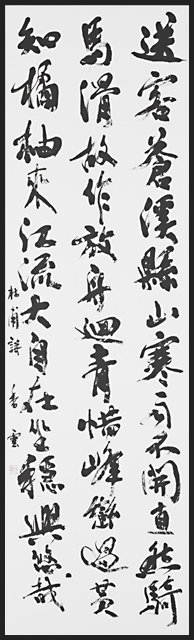 送客蒼溪縣山寒雨不開直愁騎
馬滑故作放舟迴青惜峰巒過黃
知橘柚來江流大自在坐穩興悠哉
杜甫詩 香